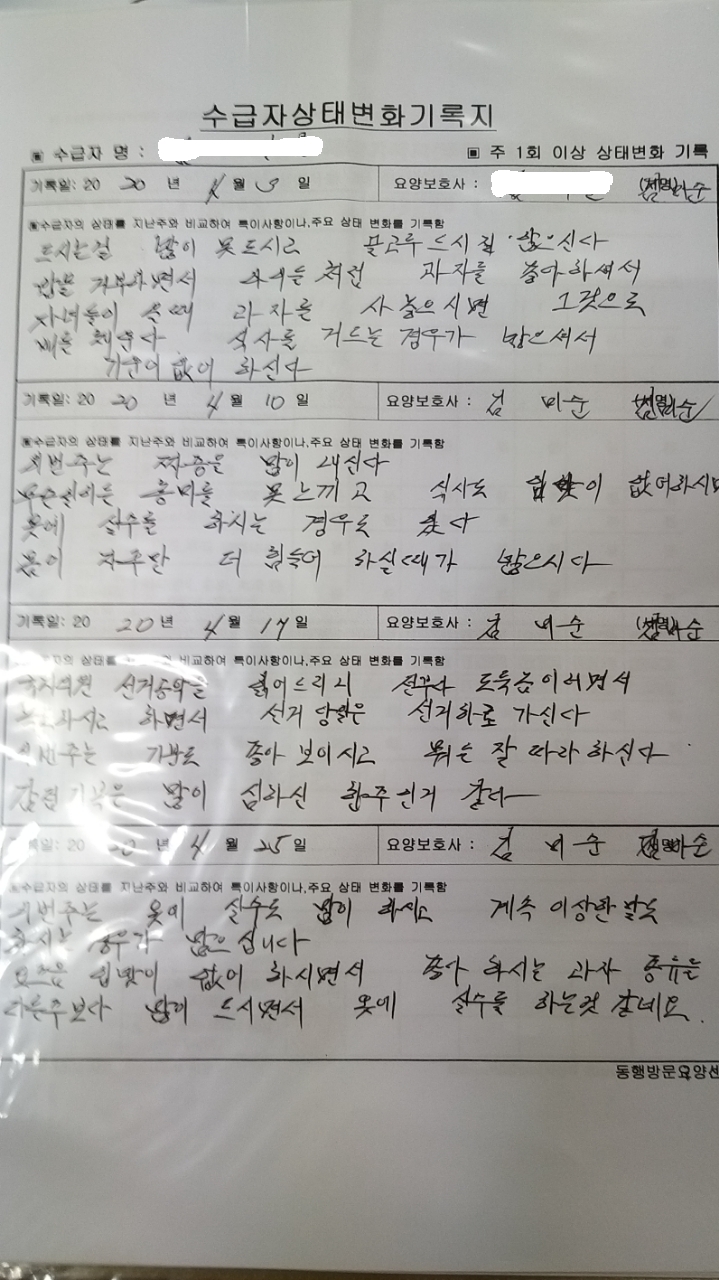 수급자상태변화기록지
▣ 수급자 명 : ▣ 주 1회 이상 상태변화 기록
기록일: 20 20 년 4 월 3 일 요양보호사 : (서명)
▣수급자의 상태를 지난주와 비교하여 특이사항이나,주요 상태 변화를 기록함
드시는걸 많이 못드시고 골고루 드시질 않으신다
밥을 거부하면서 아이들 처럼 과자를 좋아하셔서
자녀들이 올때 과자를 사 놓으시면 그것으로
배를 채운다 식사를 거르는 경우가 많으셔서
기운이 없어 하신다
기록일: 20 20 년 4 월 10 일 요양보호사 : 김 미순 (서명)
▣수급자의 상태를 지난주와 비교하여 특이사항이나,주요 상태 변화를 기록함
이번주는 짜증을 많이 내신다
무슨일이든 흥미를 못느끼고 식사도 입맛이 없어하시며
옷에 실수를 하시는 경우도 있다
몸이 더 힘들어 하실때가 많으시다
기록일: 20 20 년 4 월 17 일 요양보호사 : 김 미순 (서명)
수급자의 상태를 지난주와 비교하여 특이사항이나,주요 상태 변화를 기록함
국회의원 선거공약을 읽어드리니 전부다 도둑놈이라면서
하면서 선거 당일은 선거하로 가신다
이번주는 기분도 좋아 보이시고 뭐든 잘 따라 하신다
감정기복은 많이 심하신 한주인거 같다
기록일: 20 20 년 4 월 25 일 요양보호사 : 김 미순 (서명)
▣수급자의 상태를 지난주와 비교하여 특이사항이나,주요 상태 변화를 기록함
이번주는 옷에 실수도 많이 하시고 계속 이상한 말도
하시는 경우가 많으십니다
요즈음 입맛이 없어 하시면서 좋아 하시는 과자 종류를
다른주보다 많이 드시면서 옷에 실수를 하는것 같네요.
동행방문요양센